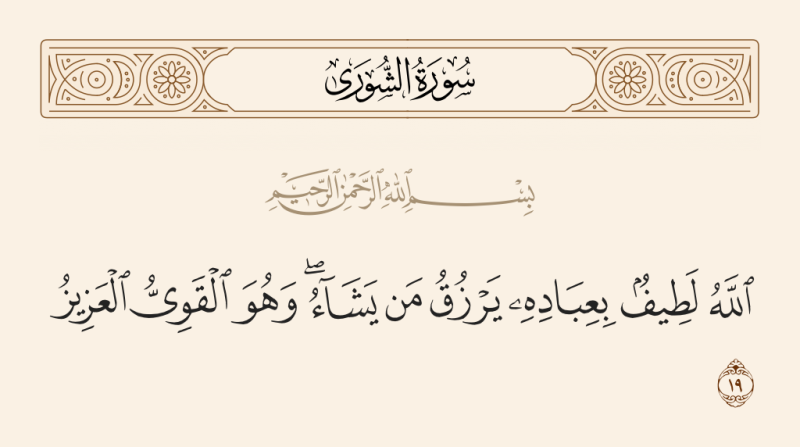 سُورَةُ الشُّورَى
بِسْمِ ٱللَّهِ ٱلرَّحْمَٰنِ ٱلرَّحِيمِ
ٱللَّهُ لَطِيفٌۢ بِعِبَادِهِۦ يَرْزُقُ مَن يَشَآءُۖ وَهُوَ ٱلْقَوِىُّ ٱلْعَزِيزُ
١٩